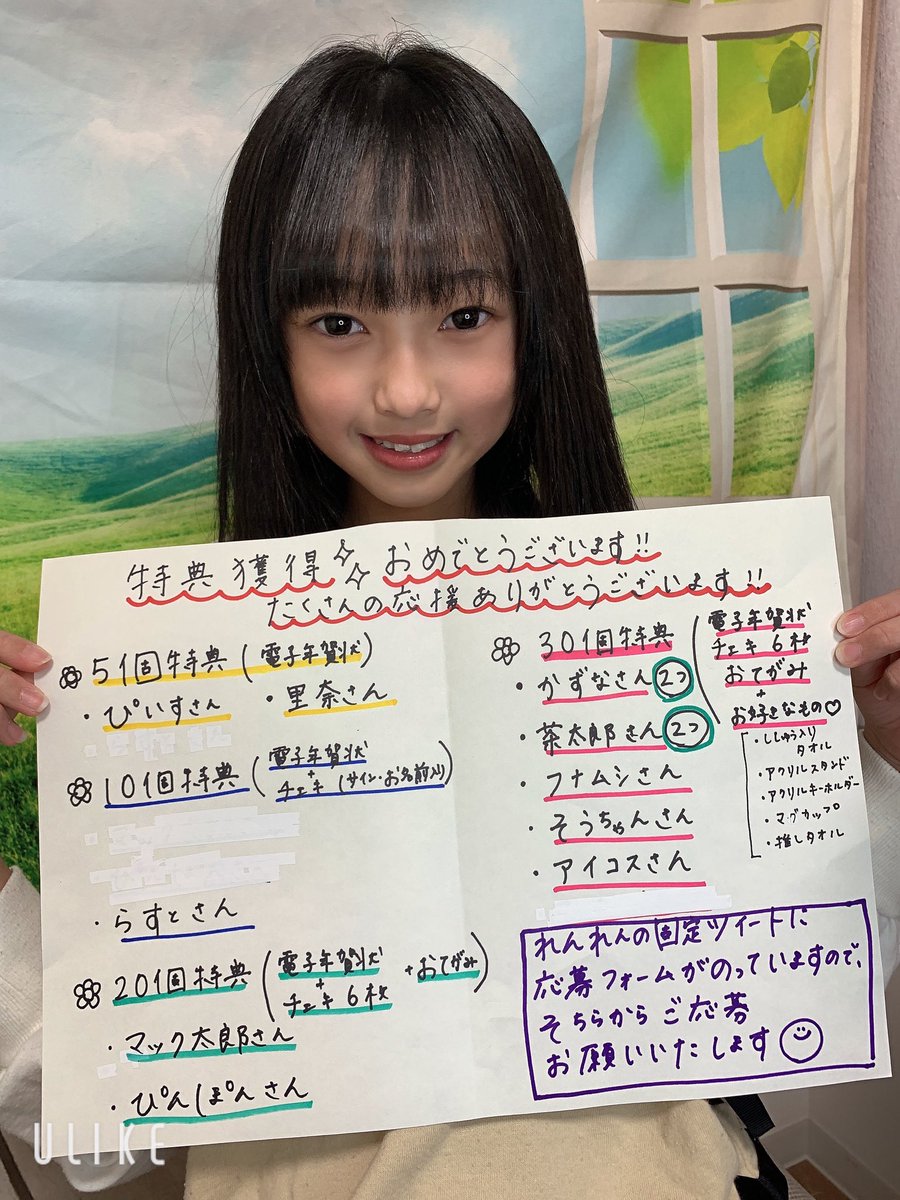 特典獲得 おめでとうございます!!
たくさんの応援ありがとうございます!!
51回特典 (電子年賀状)
・ぴぃすさん ・里奈さん
101回特典 (電子年賀状
+
チェキ(サイン・お名前入り))
・らすとさん
201回特典 (電子年賀状
+
チェキ6枚 +おてがみ)
・マック太郎さん
・ぴんぽんさん
301回特典 (電子年賀状
チェキ6枚
おてがみ
+
お好きなもの♡
・ししゅう入り
タオル
・アクリルスタンド
・アクリルキーホルダー
・マグカップ
・推しタオル
・かずなさん 2つ
・茶太郎さん 2つ
・フナムシさん
・そうちゃんさん
・アイコスさん
れんれんの固定ツイートに
応募フォームがのっていますので、
そちらからご応募
お願いいたします
ULIKE